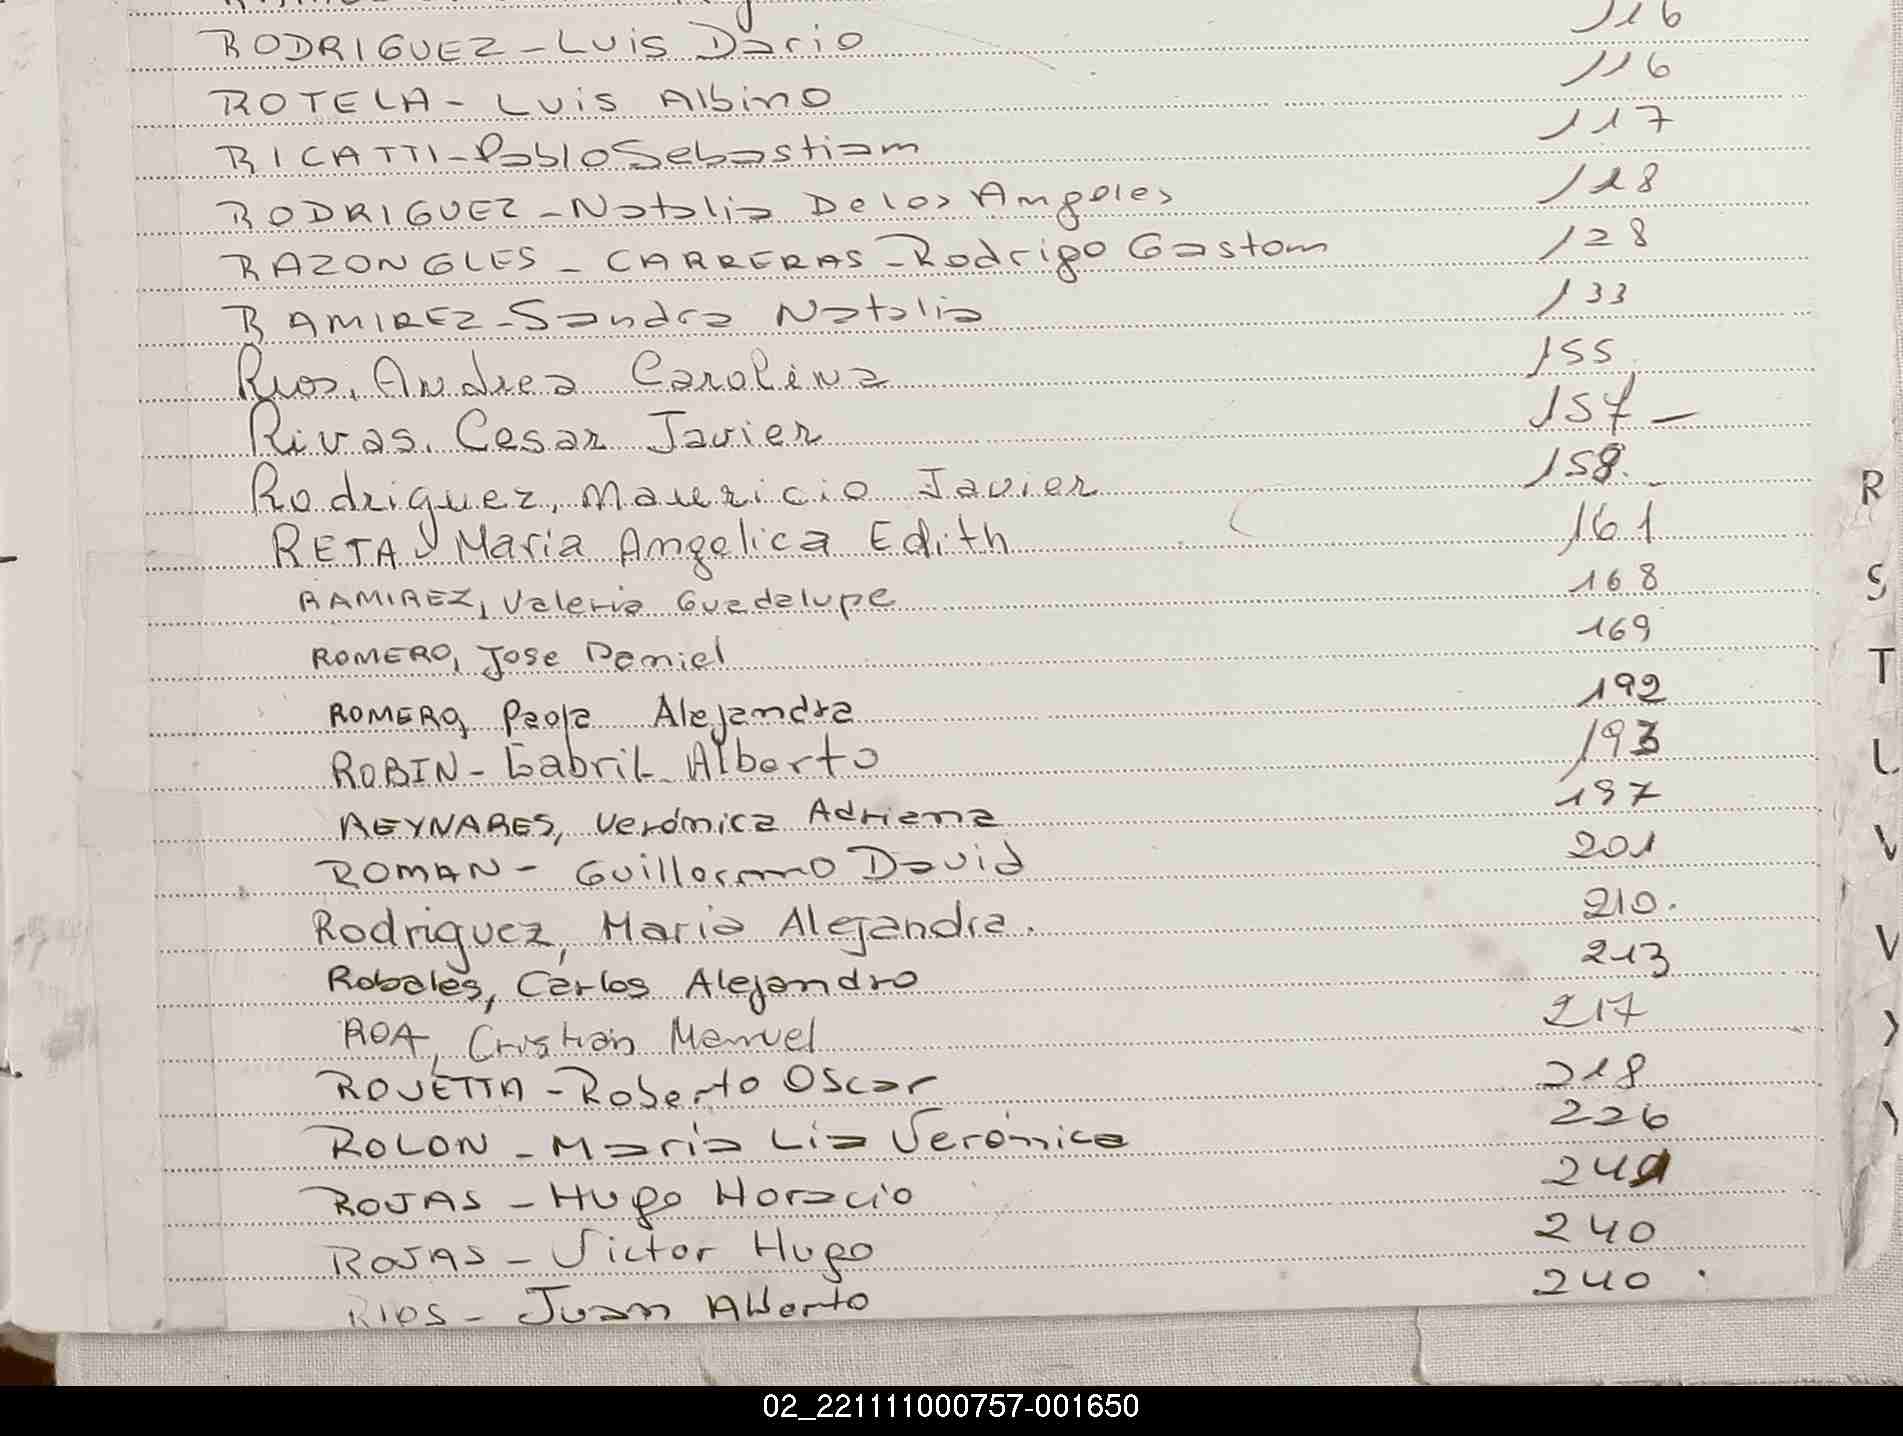 116
RODRIGUEZ - Luis Dario 116
ROTELA - Luis Albino 117
RICATTI - Pablo Sebastian 118
RODRIGUEZ - Natalia De los Angeles 128
RAZONGLES - CARRERAS - Rodrigo Gaston 133
RAMIREZ - Sandra Natalia 155
Rios, Andrea Carolina 157 -
Rivas, Cesar Javier 158.
Rodriguez, Mauricio Javier 161
RETA, Maria Angelica Edith 168
RAMIREZ, Valeria Guadalupe 169
ROMERO, Jose Daniel 192
ROMERO, Paola Alejandra 193
ROBIN - Gabril Alberto 197
REYNARES, Verónica Adriana 201
ROMAN - Guillermo David 210.
Rodriguez, Maria Alejandra. 213
Robales, Carlos Alejandro 217
ROA, Cristhian Manuel 218
ROJETTA - Roberto Oscar 226
ROLON - Maria Lia Verónica
ROJAS - Hugo Horacio 240
ROJAS - Victor Hugo 240.
RIOS - Juan Alberto
R
S
T
U
V
02_221111000757-001650